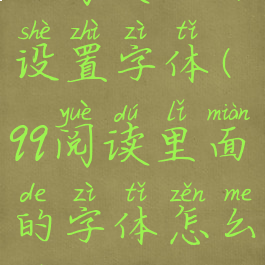 shè zhì zì tǐ
设置字体(
yuè dú lǐ miàn
99阅读里面
de zì tǐ zěn me
的字体怎么